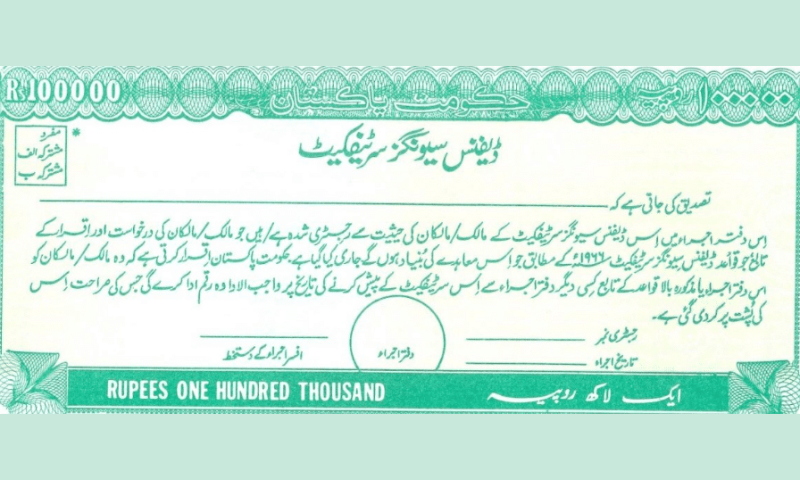 Rs 100000
حکومت پاکستان
۱۰۰۰۰۰ روپیہ
مفرد
مشترکہ الف
مشترکہ ب
*
ڈیفنس سیونگز سرٹیفکیٹ
تصدیق کی جاتی ہے کہ
اس دفتر اجراء میں اس ڈیفنس سیونگز سرٹیفکیٹ کے مالک/مالکان کی حیثیت سے رجسٹری شدہ ہے/ہیں جو مالک/مالکان کی درخواست اور اقرار کے
تابع جو قواعد ڈیفنس سیونگز سرٹیفکیٹ ۱۹۶۶ء کے مطابق جو اس معاہدے کی بنیاد ہوں گے جاری کیا گیا ہے حکومت پاکستان اقرار کرتی ہے کہ وہ مالک/مالکان کو
اس دفتر اجراء یا مذکورہ بالا قواعد کے تابع کسی دیگر دفتر اجراء سے اس سرٹیفکیٹ کے پیش کرنے کی تاریخ پر واجب الادا وہ رقم ادا کرے گی جس کی صراحت اس
کی پشت پر کر دی گئی ہے۔
رجسٹری نمبر
تاریخ اجراء
دفتر اجراء
افسر اجراء کے دستخط
RUPEES ONE HUNDRED THOUSAND
ایک لاکھ روپیہ